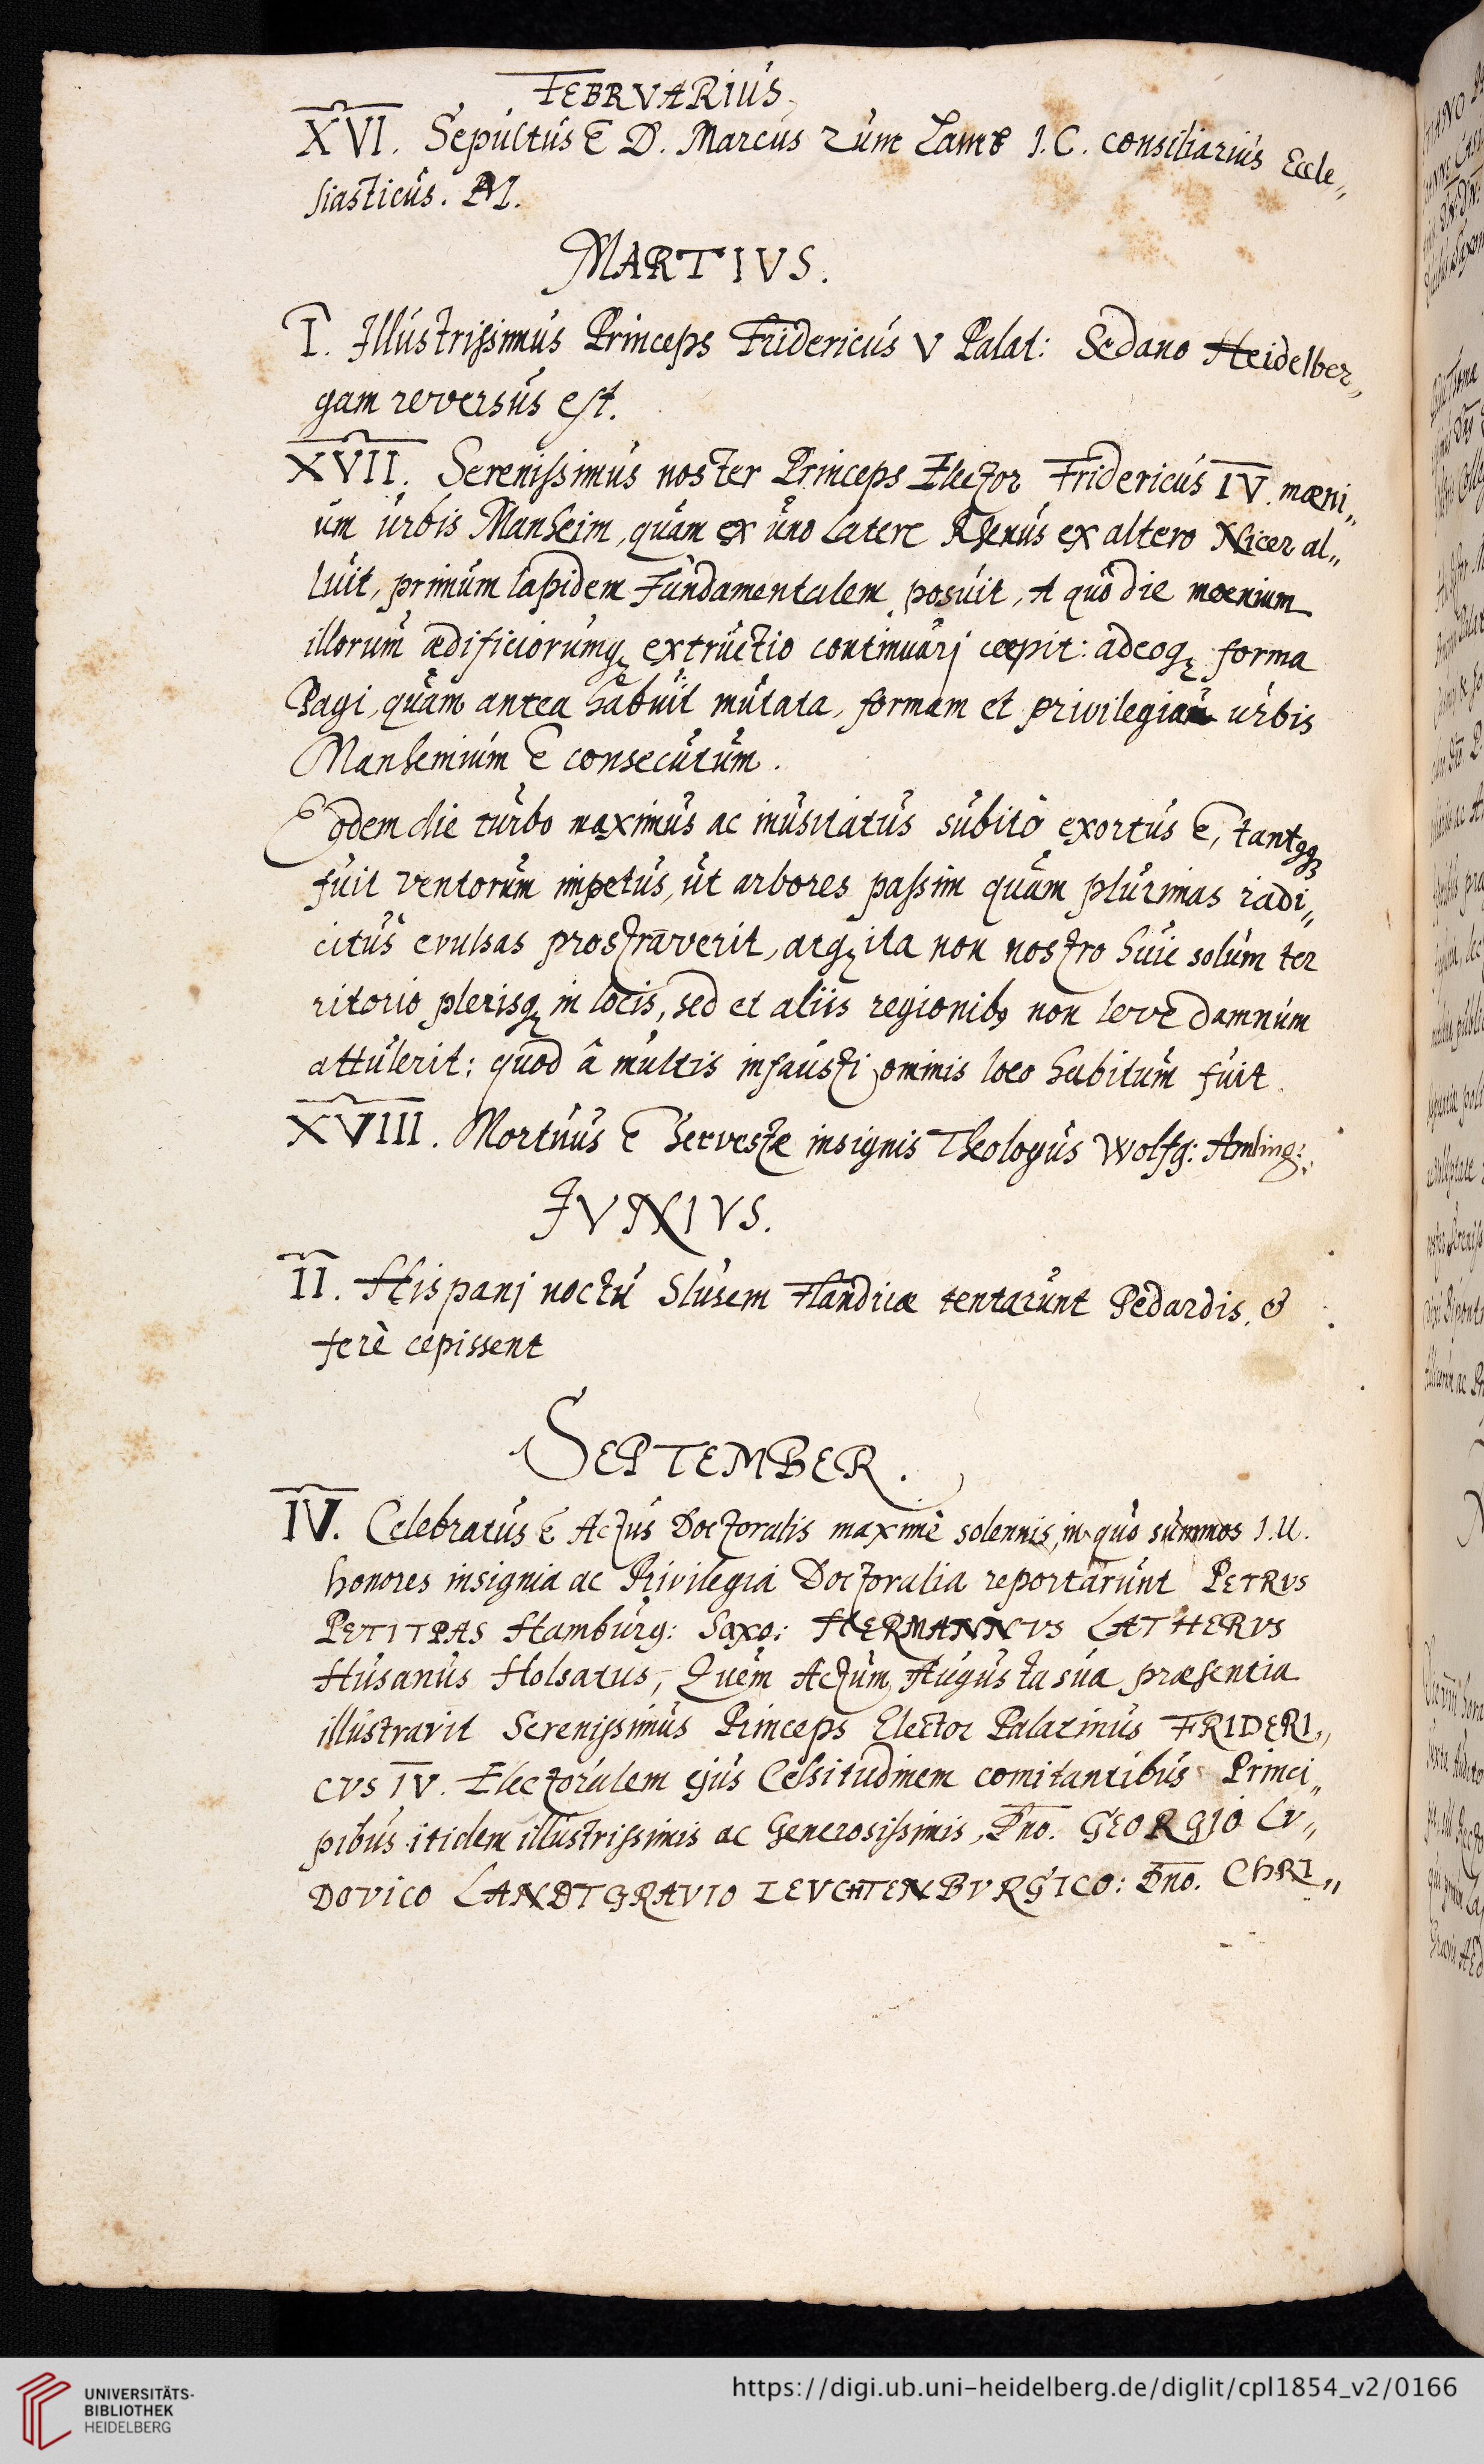 FEBRVARIUS
XVI. Sepultus ē D. Marcus zum Lamb J.C. consiliarius Eccle„
siasticus.
MARTIVS.
I. Illustrissimus Princeps Fridericus V Palat: Sedano Heidelber„
gam reversus est.
XVII. Serenissimus noster Princeps Elector Fridericus IV. mœni„
um urbis Manheim, quam ex uno latere Rhenus ex altero Nicer al„
luit, primum lapidem Fundamentalem posuit, A quo die moenium
illorum ædificiorumq₃ extructio continuarj cœpit: adeoq₃ forma
Pagi, quam antea habuit mutata, formam et privilegia urbis
Manhemium ē consecutum.
Eodem die turbo maximus ac inusitatus subitò exortus ē, tantusq₃
fuit ventorum impetus, ut arbores passim quam plurimas radi„
citus evulsas prostraverit, atq₃ ita non nostro huic solum ter
ritorio plerisq₃ in locis, sed et aliis regionib₉ non leve damnum
attulerit: quod â multis infausti ominis loco habitum fuit.
XVIII. Mortuus ē Serveste insignis Theologus Wolfg: Amling:
JVNIVS.
II. Hispanj noctu Slusem Flandricæ tentarunt Pedardis, &
ferè cepissent
SEPTEMBER.
IV. Celebratus ē Actus Doctoralis maximè solennis, in quo summos J.U.
honores insignia ac Privilegia Doctoralia reportarunt PETRVS
PETITPAS Hamburg: Saxo: HERMANNVS LATHERVS
Husanus Holsatus, Quem Actum Augusta sua præsentia
illustravit Serenissimus Princeps Elector Palatinus FRIDERI„
CVS IV. Electoralem ejus Celsitudinem comitantibus Princi„
pibus itidem illustrissimis ac Generosissimis, Dno. GEORGIO LV„
DOVICO LANDTGRAVIO LEVCHTENBVRGICO: Dno. CHRI„
UNIVERSITÄTS-
BIBLIOTHEK
HEIDELBERG
https://digi.ub.uni-heidelberg.de/diglit/cpl1854_v2/0166